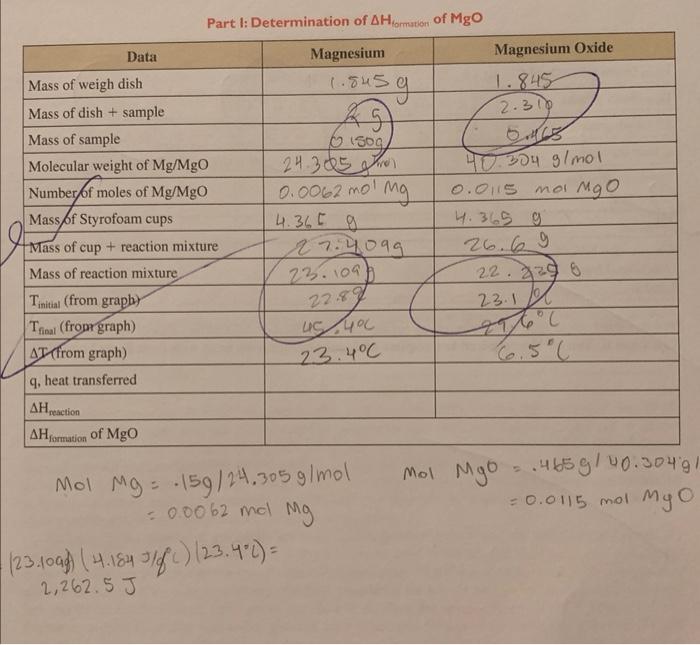 Part I: Determination of ΔHformation of MgO
Data Magnesium Magnesium Oxide
Mass of weigh dish 1.845 g 1.845
Mass of dish + sample 2.310
Mass of sample 0.150g 0.465
Molecular weight of Mg/MgO 24.305 g/mol 40.304 g/mol
Number of moles of Mg/MgO 0.0062 mol Mg 0.0115 mol MgO
Mass of Styrofoam cups 4.365 g 4.365 g
Mass of cup + reaction mixture 27.409g 26.6 g
Mass of reaction mixture 23.109 22.235 g
Tinitial (from graph) 23.1 °C
Tfinal (from graph) 29.6°C
ΔT (from graph) 23.4°C 6.5°C
q, heat transferred
ΔHreaction
ΔHformation of MgO
Mol Mg = .15g/24.305 g/mol
= 0.0062 mol Mg
Mol MgO = .465g/40.304g/
= 0.0115 mol MgO
(23.109g)(4.184 J/g°C)(23.4°C)=
2,262.5 J